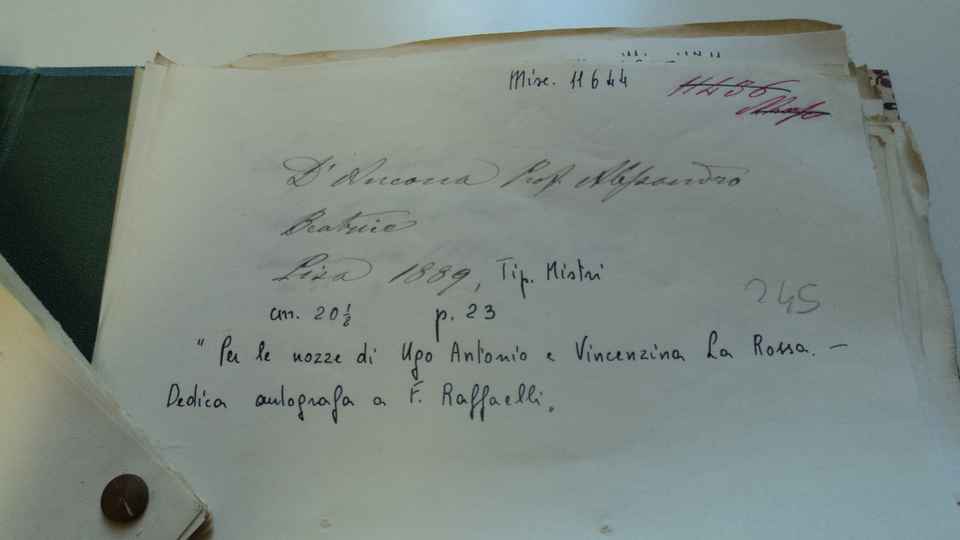 Misc. 11644
1156
D'Ancona Prof. Alessandro
Beatrice
Pisa 1889, Tip. Mistri
cm. 20½ p. 23
245
"Per le nozze di Ugo Antonio e Vincenzina La Rossa. —
Dedica autografa a F. Raffaelli.